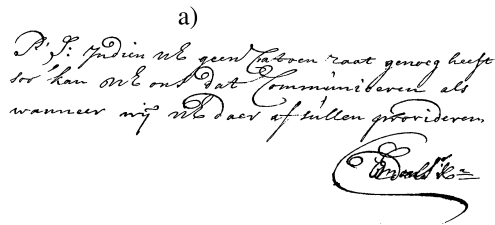 a)
P:S: Indien UE geen Catoen zaat genoeg heeft
soo kan UE ons dat Communiceren als
wanneer wij UE daer af sullen provideren